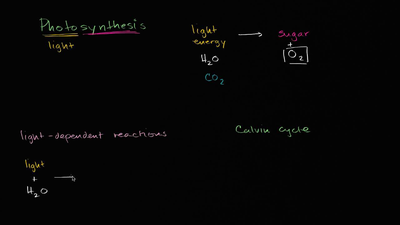 Photosynthesis
light
light
energy
H2O
CO2
sugar
+
O2
light-dependent reactions
Calvin cycle
light
+
H2O